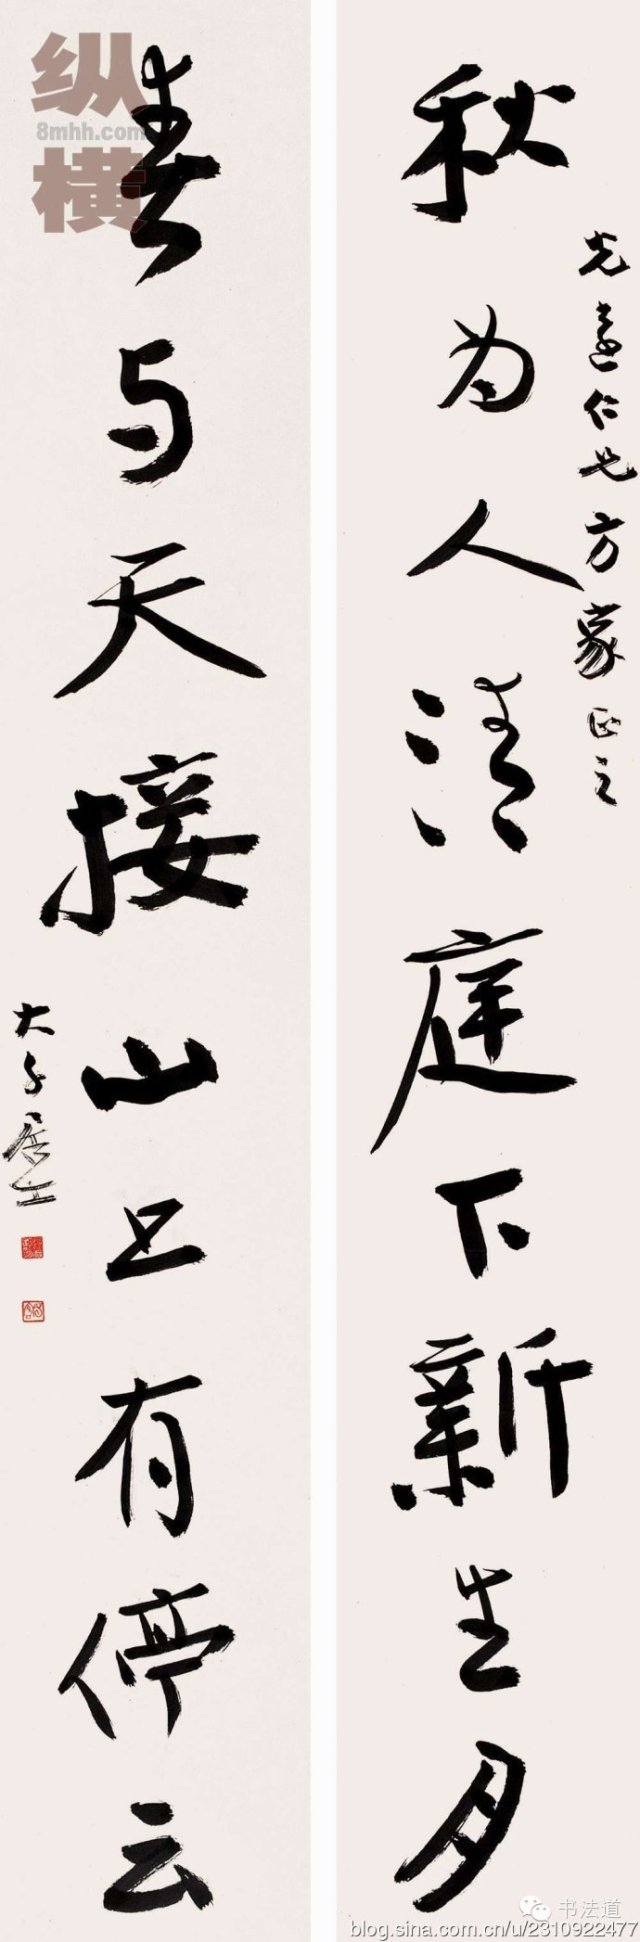 秋为人清庭下新生月
仁兄方家正之
春与天接山上有停云
大千居士
纵
8mhh.com
横
书法道
blog.sina.com.cn/u/2310922477